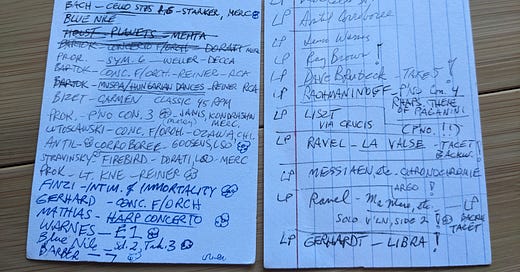 BACH - CELLO STES 1,6 - STARKER, MERC
BLUE NILE
HOLST PLANETS - MEHTA
BARTOK - CONCERTO F/ORCH - DORATI MERC
PROK. - SYM. 6 - WELLER - DECCA
BARTOK - CONC. F/ORCH - REINER - RCA
BARTOK - MUSPA/HUNGARIAN DANCES - REINER RCA
BIZET - CARMEN CLASSIC 45 RPM
PROK. - PNO CON. 3 - JANIS, KONDRASHIN
(Mercury) MERC.
LUTOSLAWSKI - CONC. F/ORCH - OZAWA, CHI.
ANTIL - CORROBOREE - GOOSENS, LSO
STRAVINSKY FIREBIRD - DORATI, LSO - MERC
PROK - LT. KIJE - REINER
FINZI - INTIM. OF IMMORTALITY
GERHARD - CONC. F/ORCH
MATHIAS - HARP CONCERTO
WARNES - £1
Blue Nile - Sd. 2, Trk. 3
BARBER - 7
LP
LP Antil Corroboree
LP Jenn Warnes
LP Ray Brown!
LP DAVE BRUBECK - TAKE 5!
LP RACHMANINOFF - PNO CON. 4
RHAPS. THEME
OF PAGANINI
LP LISZT (PNO. !!)
VIA CRUCIS
LP RAVEL - LA VALSE - TACET!
BACKW.
LP MESSIAEN, etc. - CHRONOCHROMIE
ARGO!
LP Ravel - Ma Mere, etc. - LP
SOLO V'LN, SIDE 2! BACKW.
TACET
LP GERHARDT - LIBRA!